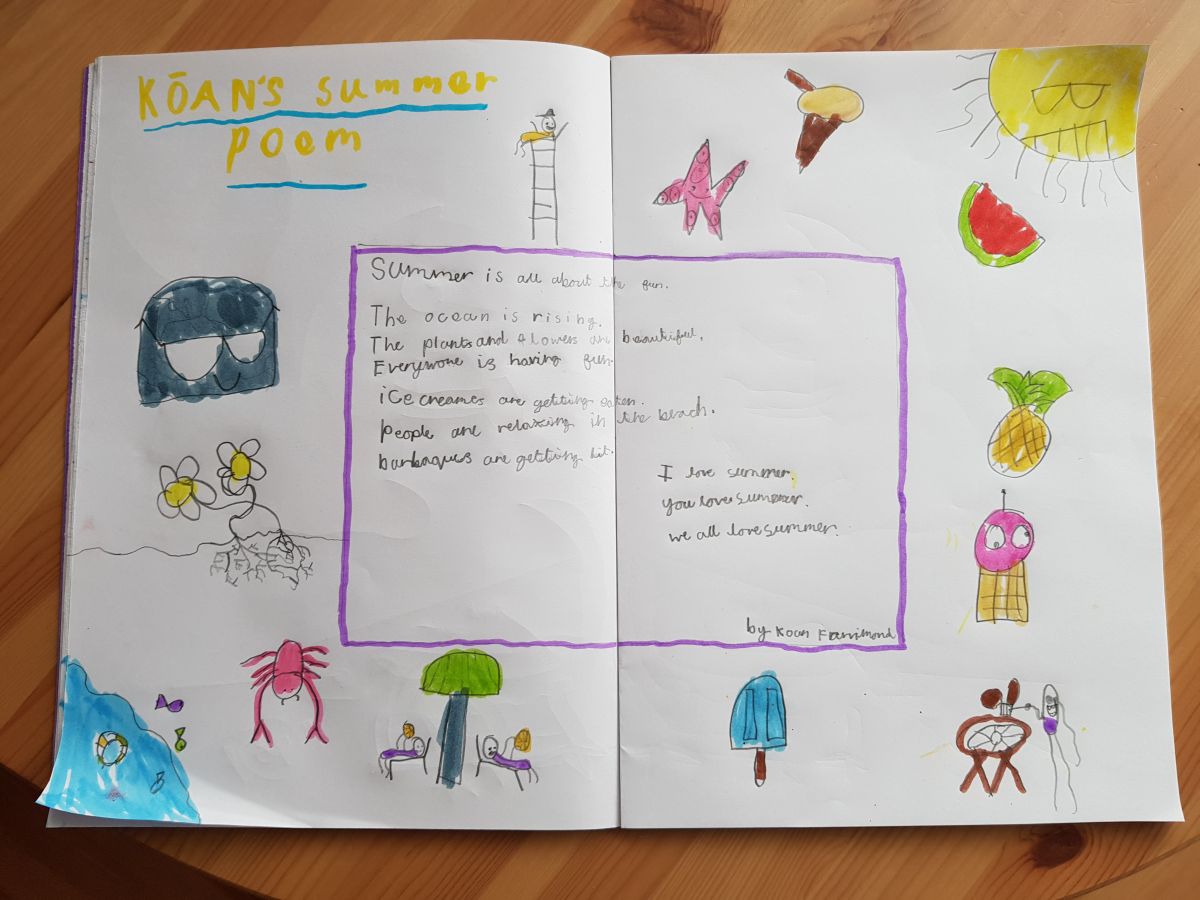 KŌAN'S summer
poem
Summer is all about the fun.
The ocean is rising.
The plants and flowers are beautiful.
Everywone is having fun.
ice creames are getiting eaten.
people are relaxing in the beach.
barbaques are getiting hit.
I love summer.
you love summer.
we all love summer.
by Koan